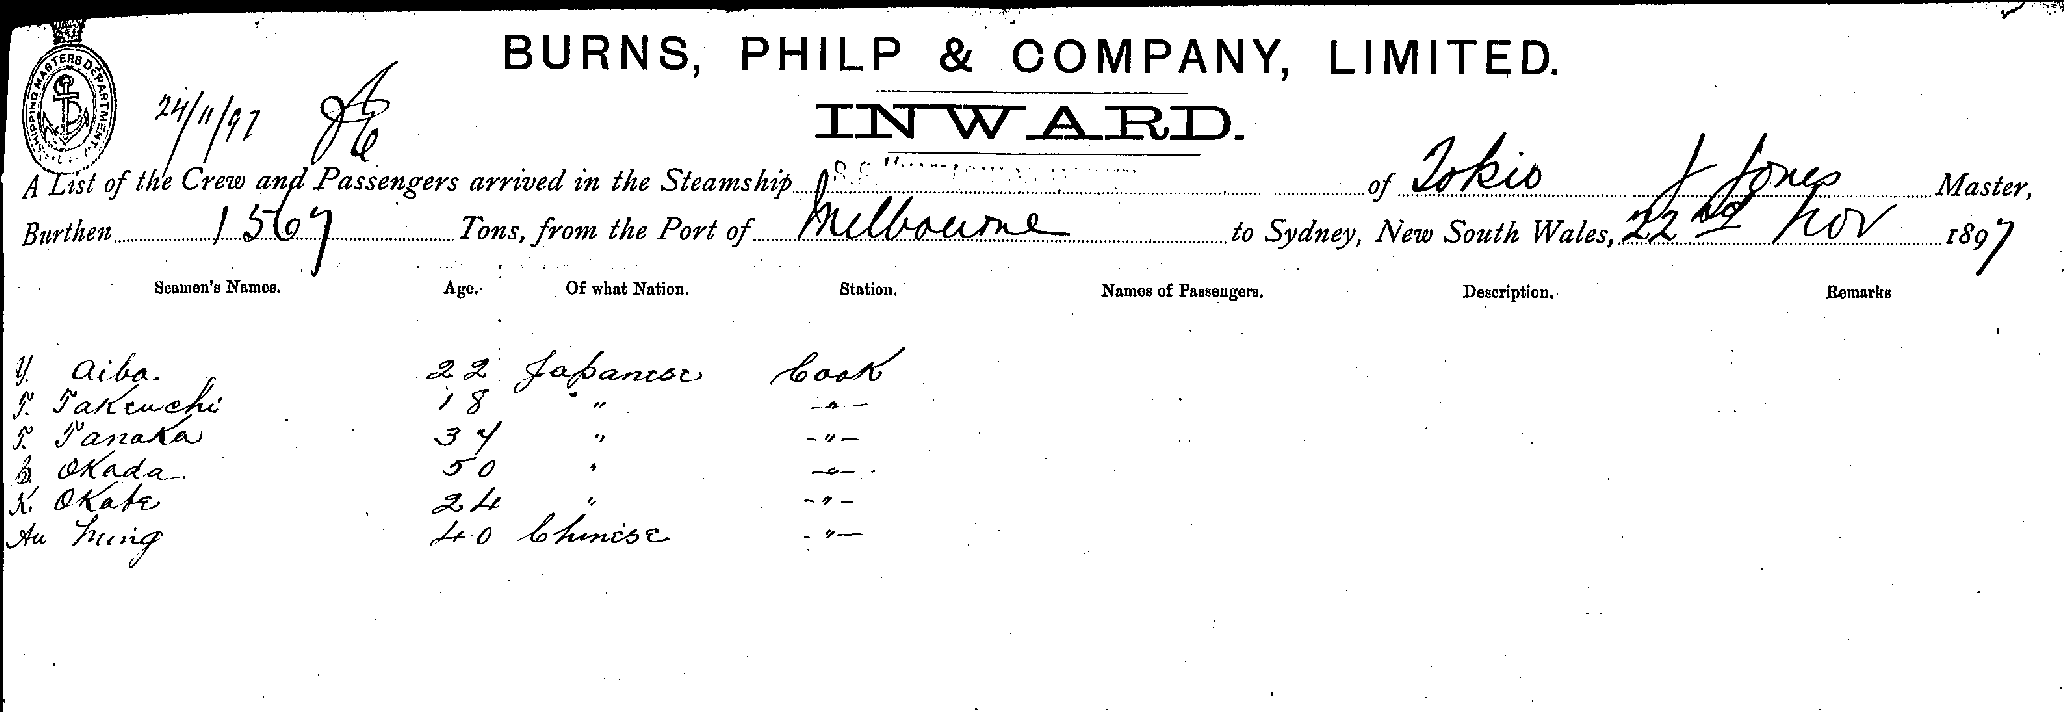 BURNS, PHILP & COMPANY, LIMITED.
SHIPPING MASTERS DEPARTMENT
24/11/97
INWARD.
A List of the Crew and Passengers arrived in the Steamship S.S. of Tokio J Jones Master,
Burthen 1567 Tons, from the Port of Melbourne to Sydney, New South Wales, 22nd Nov 1897
Seamen's Names. Age. Of what Nation. Station. Names of Passengers. Description. Remarks
Y. Aiba. 22 Japanese Cook
T. Takeuchi 18 " -"-
T. Tanaka 37 " -"-
Okada 50 " -"-
K. Okabe 24 " -"-
Au Ming 40 Chinese -"-